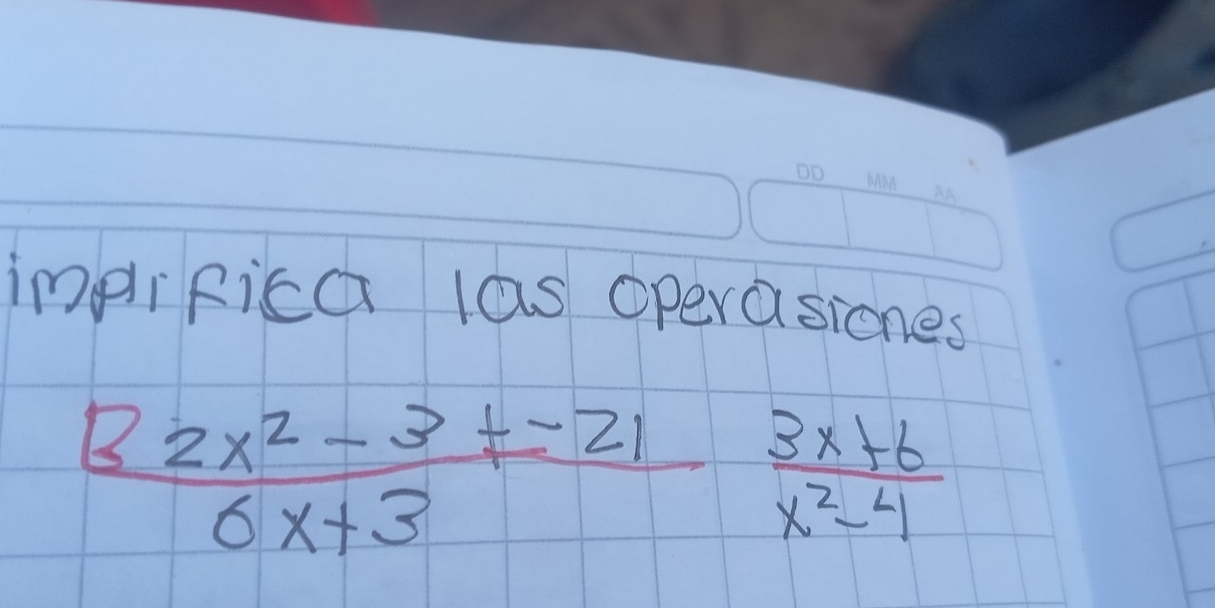 DD MM AA
implifica las operasiones
2x² - 3 + - 21 3x+6
6x+3 x²-4